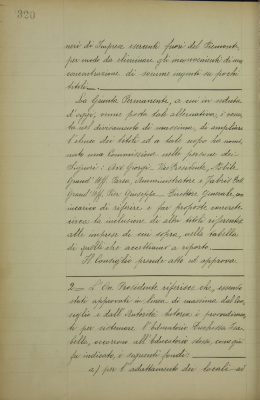 320
neri di Impresa esercenti fuori del Piemonte,
per modo da eliminare gli inconvenienti di una
concentrazione di somme ingenti su pochi
titoli.
La Giunta Permanente, a cui in seduta
d'oggi, venne posta tale alternativa, è venu-
ta nel divisamento di massima, di ampliare
l'elenco dei titoli ed a tale scopo ha nomi-
nato una Commissione nelle persone dei
Signori: Avv. Giorgi, Vice Presidente, Nobile
Grand'Uff. Carlo, Amministratore e
Grand'Uff. Giuseppe, Direttore Generale, con
incarico di riferire e far proposte concrete
circa la inclusione di altri titoli afferenti
alle imprese di cui sopra, nella tabella
di quelli che accettiamo a riporto.
Il Consiglio prende atto ed approva.
2 L'On. Presidente riferisce che, essendo
stati approvati in linea di massima dal Con-
siglio e dall'Autorità tutoria i provvedimen-
ti per sistemare l'Educatorio Duchessa Isa-
bella, occorrono all'Educatorio stesso, come
fu indicato, i seguenti fondi:
a) per l'adattamento dei locali ed